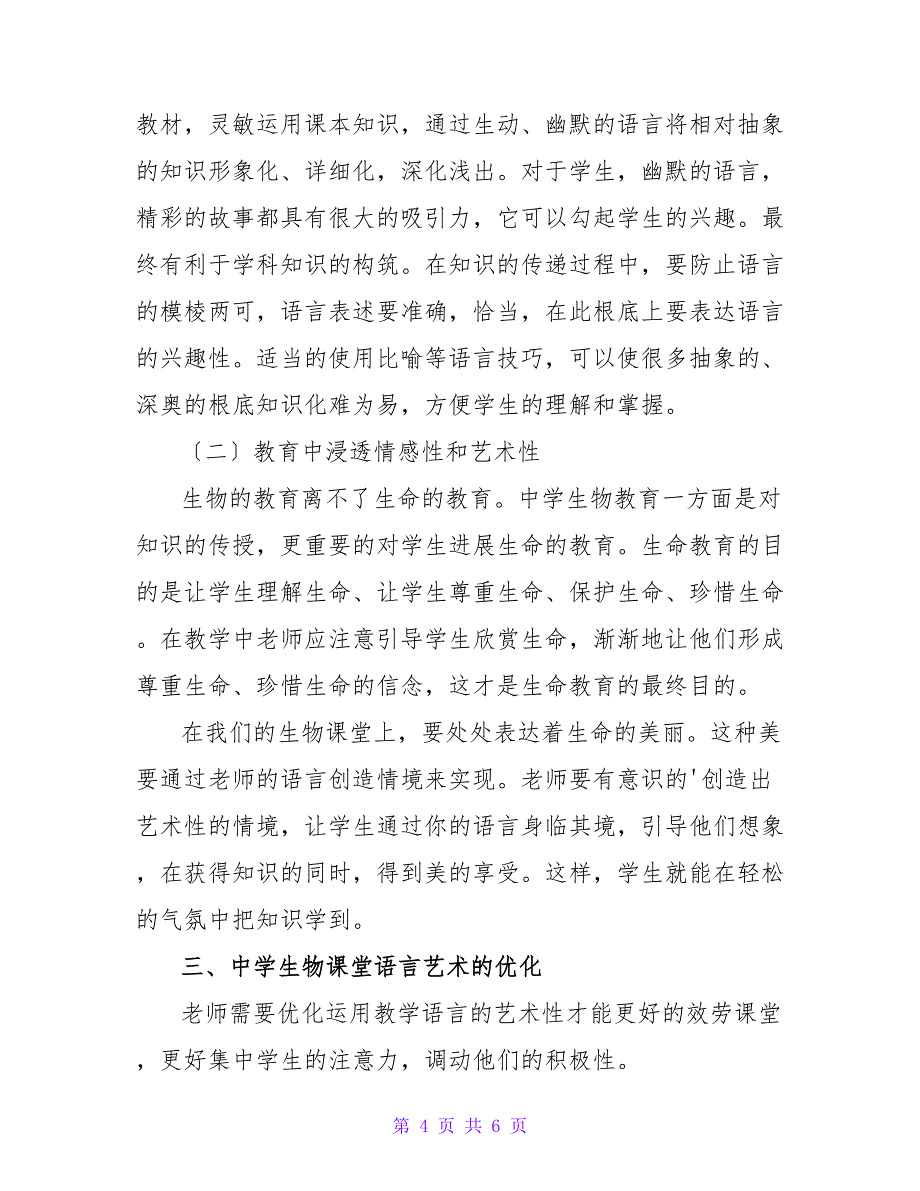 教材，灵敏运用课本知识，通过生动、幽默的语言将相对抽象
的知识形象化、详细化，深化浅出。对于学生，幽默的语言，
精彩的故事都具有很大的吸引力，它可以勾起学生的兴趣。最
终有利于学科知识的构筑。在知识的传递过程中，要防止语言
的模棱两可，语言表述要准确，恰当，在此根底上要表达语言
的兴趣性。适当的使用比喻等语言技巧，可以使很多抽象的、
深奥的根底知识化难为易，方便学生的理解和掌握。
〔二〕教育中浸透情感性和艺术性
生物的教育离不了生命的教育。中学生物教育一方面是对
知识的传授，更重要的对学生进展生命的教育。生命教育的目
的是让学生理解生命、让学生尊重生命、保护生命、珍惜生命
。在教学中老师应注意引导学生欣赏生命，渐渐地让他们形成
尊重生命、珍惜生命的信念，这才是生命教育的最终目的。
在我们的生物课堂上，要处处表达着生命的美丽。这种美
要通过老师的语言创造情境来实现。老师要有意识的'创造出
艺术性的情境，让学生通过你的语言身临其境，引导他们想象
，在获得知识的同时，得到美的享受。这样，学生就能在轻松
的气氛中把知识学到。
三、中学生物课堂语言艺术的优化
老师需要优化运用教学语言的艺术性才能更好的效劳课堂
，更好集中学生的注意力，调动他们的积极性。
第 4 页 共 6 页